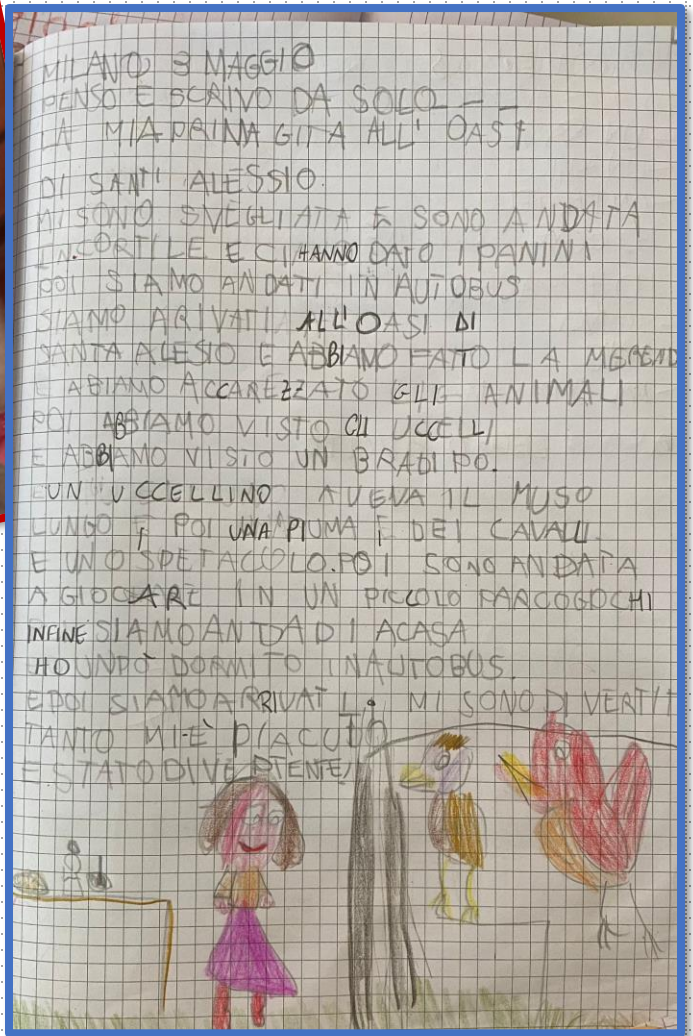 MILANO 3 MAGGIO
PENSO E SCRIVO DA SOLO
LA MIA PRIMA GITA ALL' OASI
DI SANT' ALESSIO.
MI SONO SVEGLIATA E SONO ANDATA
IN CORTILE E CI HANNO DATO I PANINI
POI SIAMO ANDATI IN AUTOBUS
SIAMO ARIVATI ALL'OASI DI
SANTA ALESIO E ABBIAMO FATTO LA MEREND
E ABIAMO ACCAREZZATO GLI ANIMALI
POI ABBIAMO VISTO GLI UCCELLI
E ABBIAMO VISTO UN BRADIPO.
UN UCCELLINO AVEVA IL MUSO
LUNGO E POI UNA PIUMA E DEI CAVALLI
E UNO SPETACCOLO. POI SONO ANDATA
A GIOCARE IN UN PICCOLO PARCOGOCHI
INFINE SIAMO ANDADI ACASA
HO UNPÒ DORMITO INAUTOBUS.
E POI SIAMO ARRIVATI. MI SONO DIVERTIT
TANTO MI È PIACUTO
E STATO DIVERTENTE